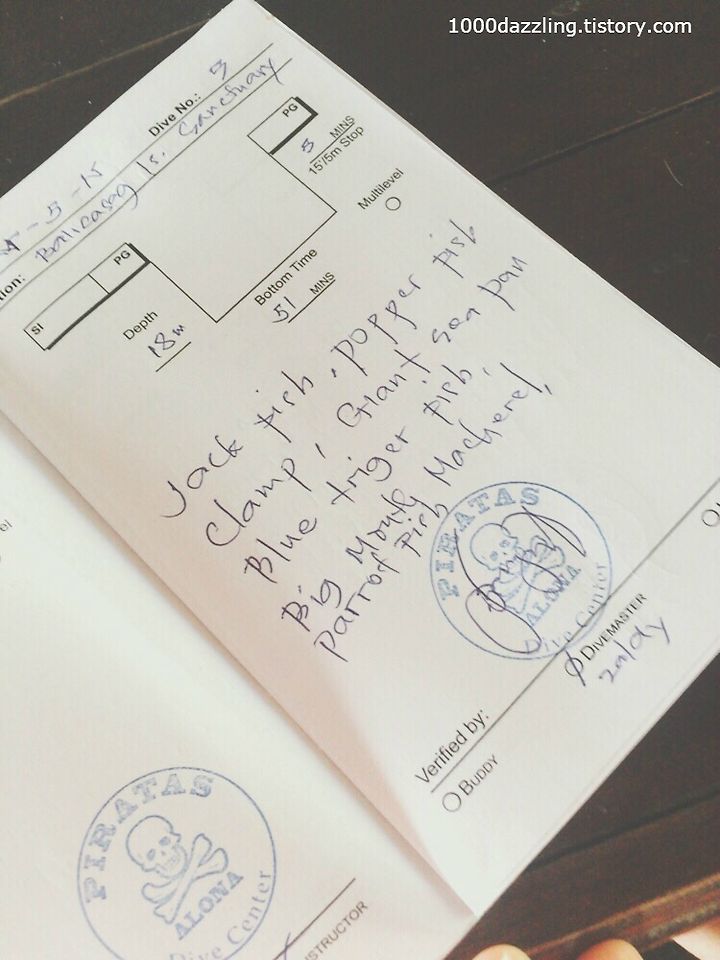 1000dazzling.tistory.com
Dive No.: 5
-5-15
tion: Balicasag Is. Sanctuary
SI PG PG
Depth 18m
Bottom Time 51 MINS
5 MINS
15'/5m Stop
Multilevel
Jack fish, popper fish
Clamp, Giant sea fan
Blue triger fish,
Big Mouth Macherel,
Parrot fish
PIRATAS
ALONA
Dive Center
Verified by:
BUDDY
DIVEMASTER
PIRATAS
ALONA
Dive Center
STRUCTOR